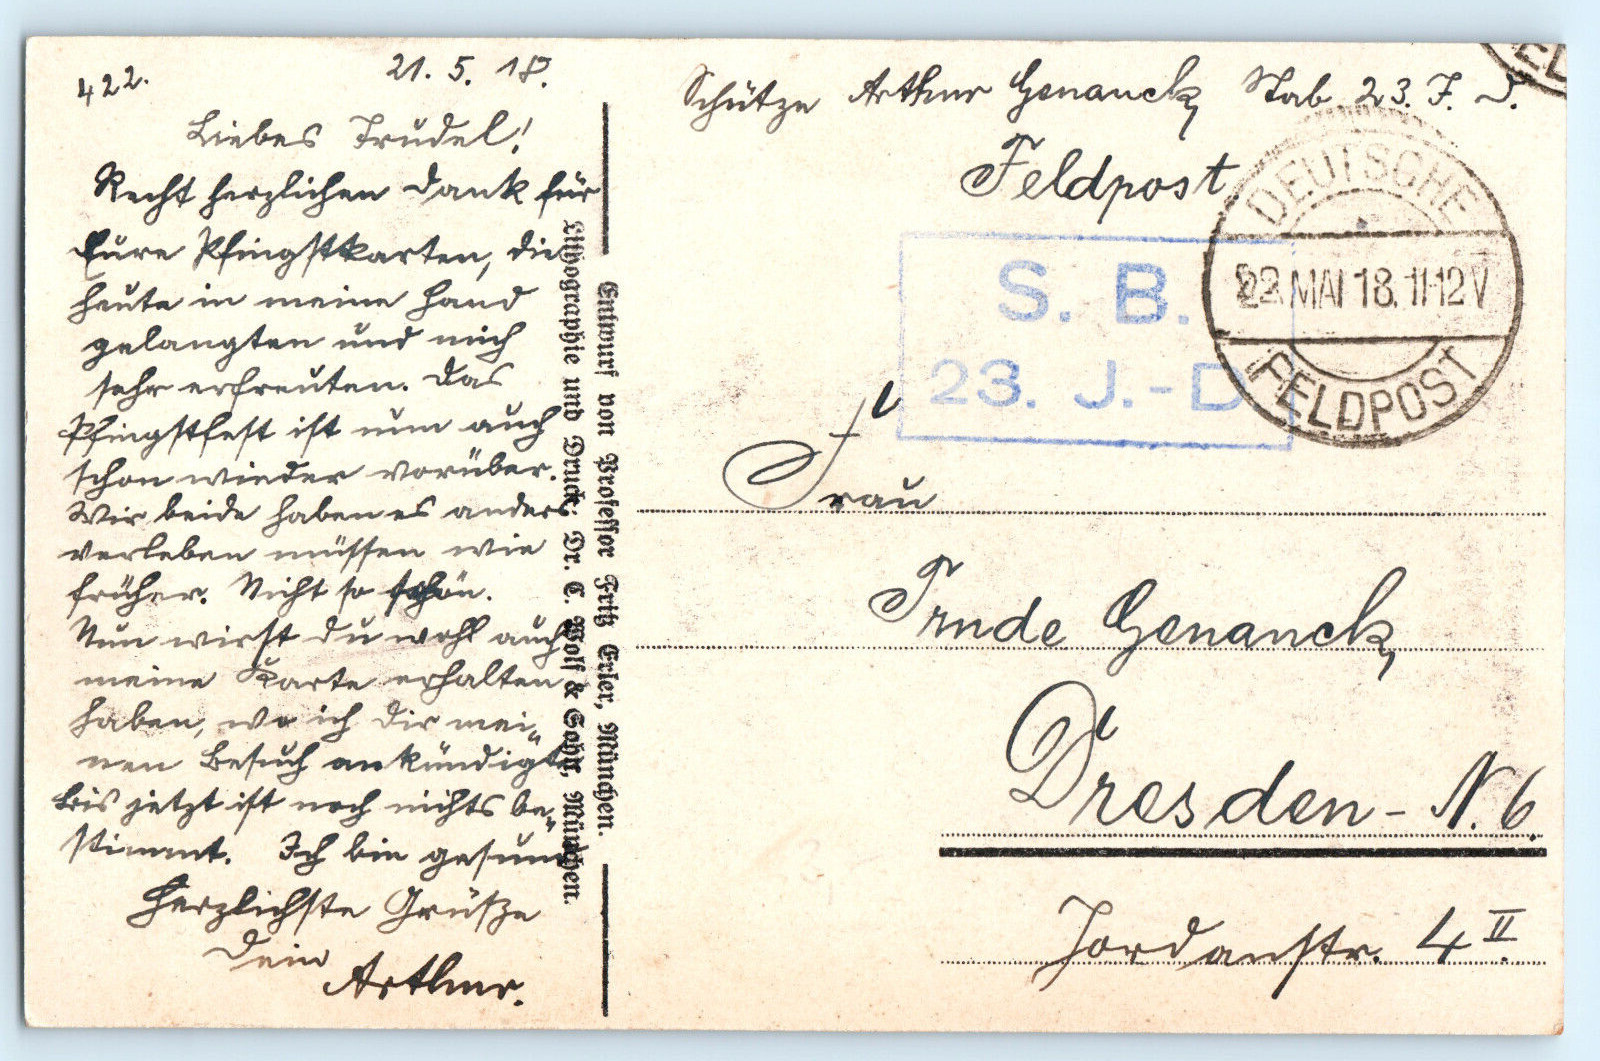 422.
21. 5. 18.
Liebes Trudel!
Recht herzlichen Dank für
Eure Pfingstkarten, die
heute in meine Hand
gelangten und mich
sehr erfreuten. Das
Pfingstfest ist nun auch
schon wieder vorüber.
Wir beide haben es anders
verleben müssen wie
früher. Nicht so schön.
Nun wirst Du wohl auch
meine Karte erhalten
haben, wo ich Dir mei-
nen Besuch ankündigte
Bis jetzt ist noch nichts be-
stimmt. Ich bin gesund
Herzlichste Grüße
Dein
Arthur.
Entwurf von Professor Fritz Erler, München.
Lithographie und Druck: Dr. C. Wolf & Sohn, München.
Schütze Arthur Genauck, Stab 23. J. D.
Feldpost
DEUTSCHE
22 MAI 18. 11-12 V
FELDPOST
S. B.
23. J.-D
Frau
Trude Genauck,
Dresden - N. 6.
Jordanstr. 4 II.